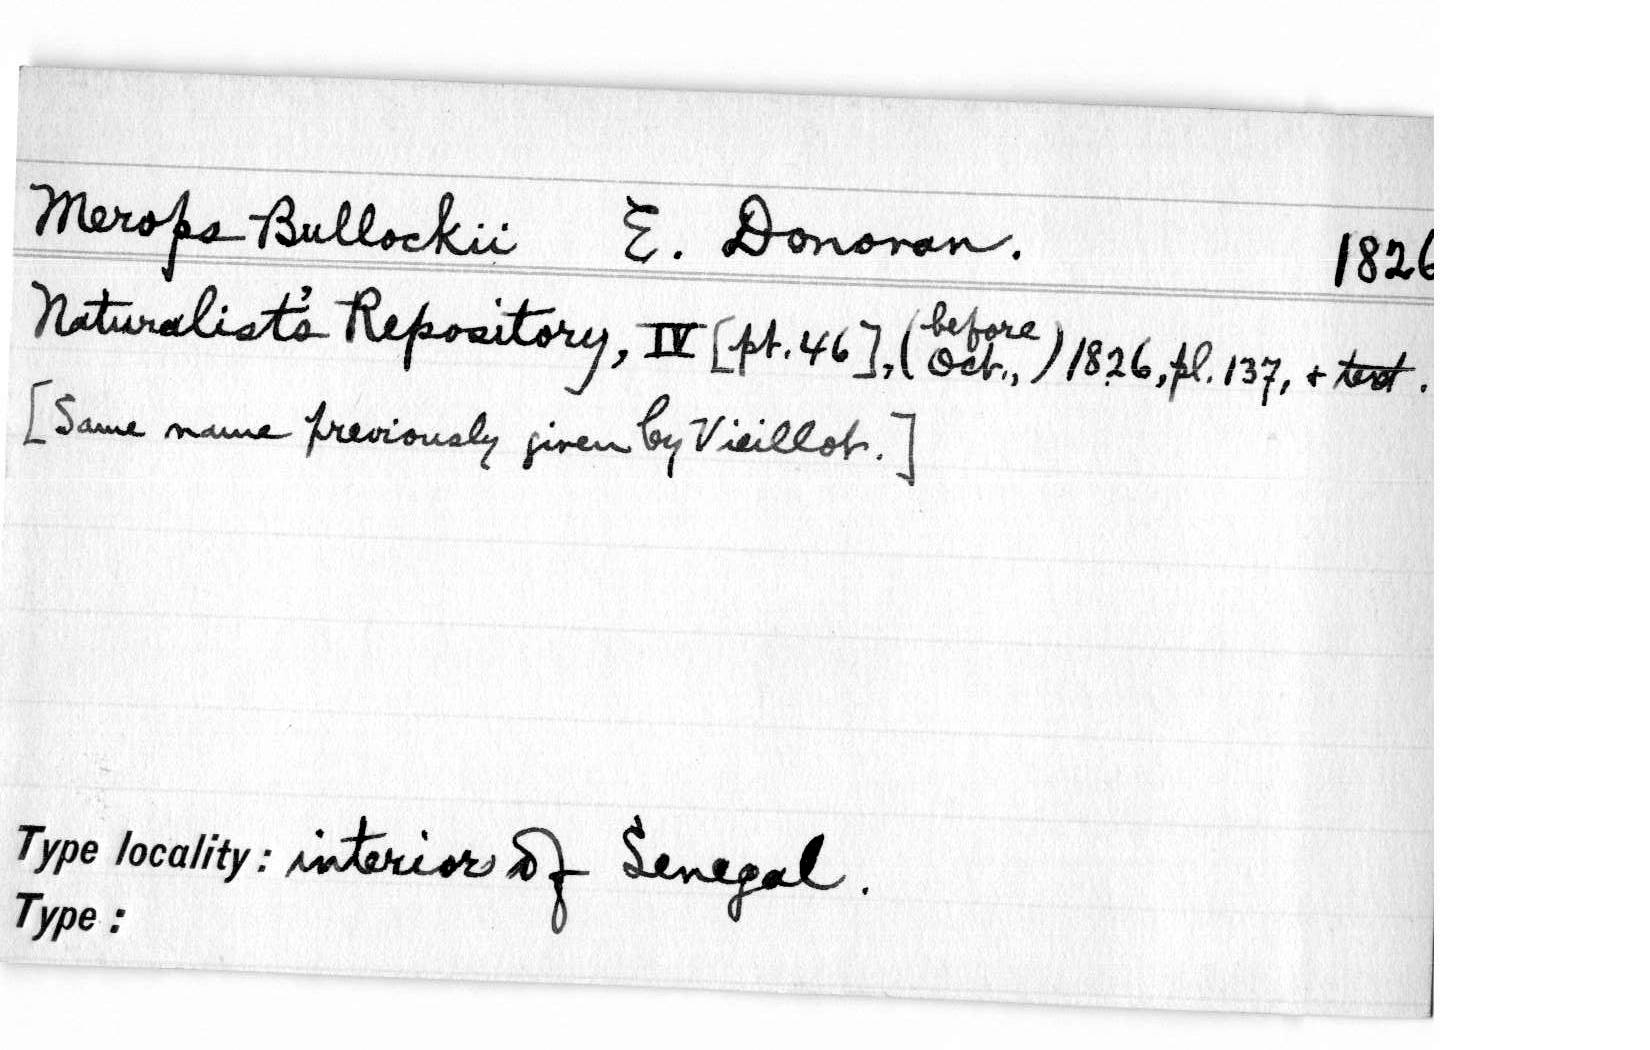 Merops Bullockii E. Donovan. 1826
Naturalist's Repository, IV [pt. 46], (before Oct.,) 1826, pl. 137, + text.
[Same name previously given by Vieillot.]
Type locality: interior of Senegal.
Type: